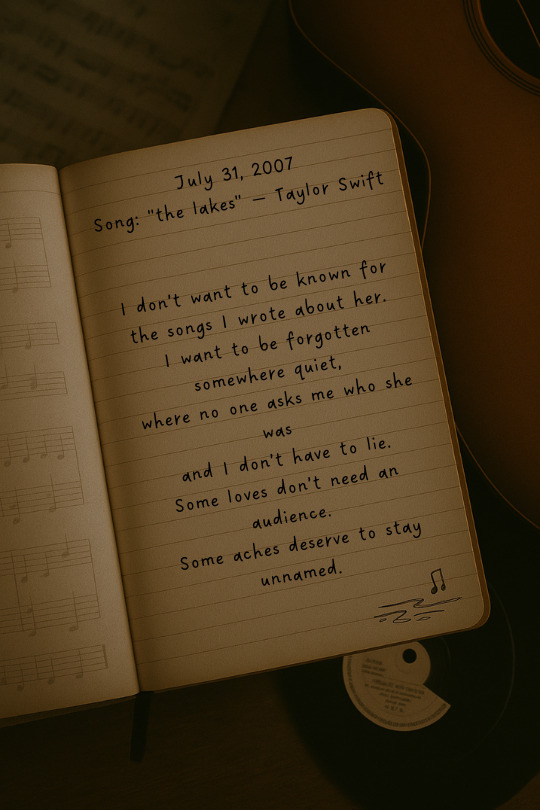 July 31, 2007
Song: "the lakes" — Taylor Swift
I don't want to be known for
the songs I wrote about her.
I want to be forgotten
somewhere quiet,
where no one asks me who she
was
and I don't have to lie.
Some loves don't need an
audience.
Some aches deserve to stay
unnamed.